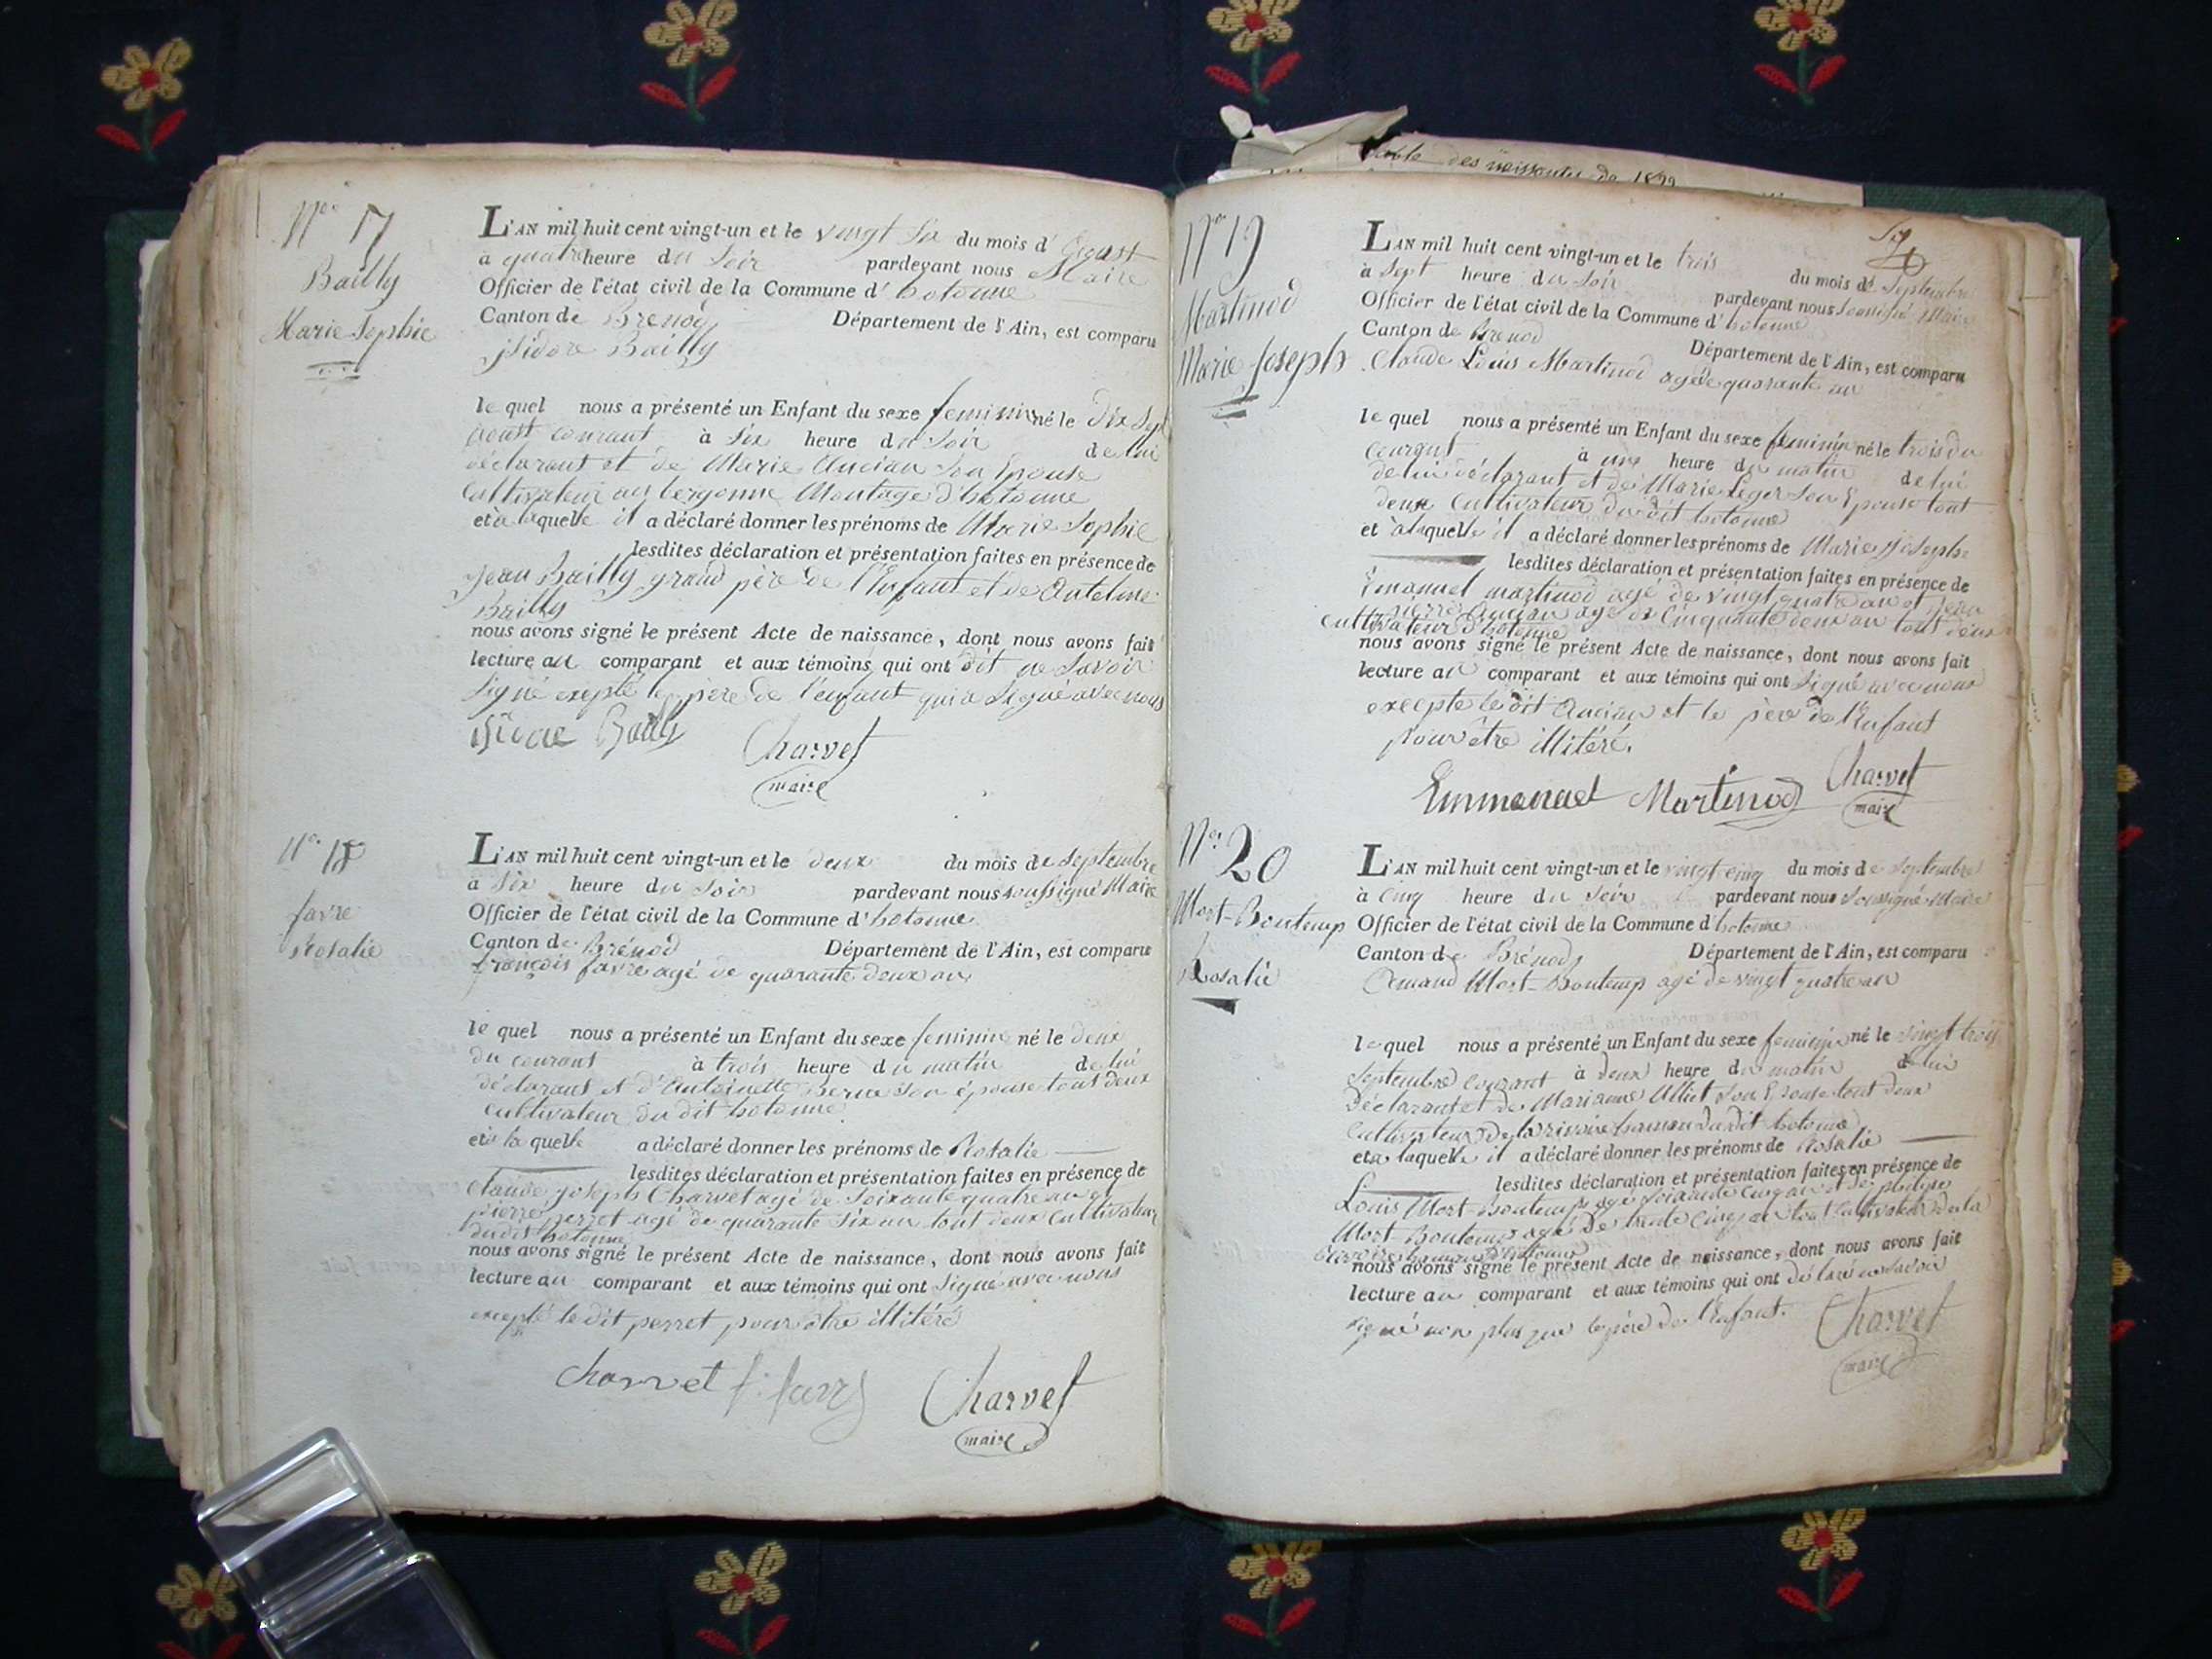 Nos 17
Bailly
Marie Sophie
L'AN mil huit cent vingt-un et le vingt Six du mois d' Aoust
à quatre heure du Soir pardevant nous Maire
Officier de l'état civil de la Commune d' hotonne
Canton de Brenod Département de l'Ain, est comparu
jsidore Bailly
le quel nous a présenté un Enfant du sexe feminin né le Dix Sept
aoust courant à Six heure du Soir de lui
déclarant et de Marie Ancian Son Epouse
Cultivateur au bergonne Montage d'hotonne
et à laquelle il a déclaré donner les prénoms de Marie Sophie
lesdites déclaration et présentation faites en présence de
Jean Bailly grand père de l'Enfant et de Antelme
Bailly
nous avons signé le présent Acte de naissance, dont nous avons fait
lecture au comparant et aux témoins qui ont dit ne Savoir
Signé exepté le père de l'enfant qui a Signé avec nous
Bailly Charvet
maire
Nos 18
favre
Rosalie
L'AN mil huit cent vingt-un et le deux du mois de Septembre
à Six heure du Soir pardevant nous soussigné Maire
Officier de l'état civil de la Commune d' hotonne
Canton de Brénod Département de l'Ain, est comparu
françois favre agé de quarante deux an
le quel nous a présenté un Enfant du sexe feminin né le deux
du courant à trois heure du matin de lui
déclarant et d'Antoinette Berne Son épouse tout deux
cultivateur du dit hotonne
et à la quelle a déclaré donner les prénoms de Rosalie
lesdites déclaration et présentation faites en présence de
Claude joseph Charvet agé de Soixante quatre an et
pierre perret agé de quarante Six an tout deux Cultivateur
du dit hotonne
nous avons signé le présent Acte de naissance, dont nous avons fait
lecture au comparant et aux témoins qui ont Signé avec nous
exepté le dit perret pour être illitéré
Charvet Charvet
maire
Table des naissantes de
Nos 19
Martinod
Marie Joseph
L'AN mil huit cent vingt-un et le trois du mois de Septembre
à Sept heure du Soir pardevant nous Soussigné Maire
Officier de l'état civil de la Commune d' hotonne
Canton de Brenod Département de l'Ain, est comparu
Claude Louis Martinod agé de quarante an
le quel nous a présenté un Enfant du sexe feminin né le trois du
Courant à une heure du matin de lui
de lui déclarant et de Marie Leger Son Epouse tout
deux Cultivateur du dit hotonne
et à laquelle il a déclaré donner les prénoms de Marie Josephe
lesdites déclaration et présentation faites en présence de
Emanuel martinod agé de vingt quatre an et Jean
pierre Ancian agé de Cinquante deux an tout deux
Cultivateur d'hotonne
nous avons signé le présent Acte de naissance, dont nous avons fait
lecture au comparant et aux témoins qui ont Signé avec nous
excepte le dit Ancian et le père de l'Enfant
pour être illitéré.
Emmanuel Martinod Charvet
maire
Nos 20
Mort-Boutemp
Rosalie
L'AN mil huit cent vingt-un et le vingt cinq du mois de Septembre
à Cinq heure du Soir pardevant nous Soussigné Maire
Officier de l'état civil de la Commune d' hotonne
Canton de Brénod Département de l'Ain, est comparu
Mort-Boutemp agé de vingt quatre an
le quel nous a présenté un Enfant du sexe feminin né le vingt trois
Septembre courant à deux heure du matin de lui
Déclarant et de Marianne Son Epouse tout deux
Cultivateur de la rivoire hameau du dit hotonne
et à laquelle il a déclaré donner les prénoms de Rosalie
lesdites déclaration et présentation faites en présence de
Louis Mort-Boutemp agé Soixante cinq an
Mort Boutemp agé De trente Cinq an tout Cultivateur de la
hameau d'hotonne
nous avons signé le présent Acte de naissance, dont nous avons fait
lecture au comparant et aux témoins qui ont déclaré ne savoir
signé non plus que le père de l'Enfant. Charvet
maire